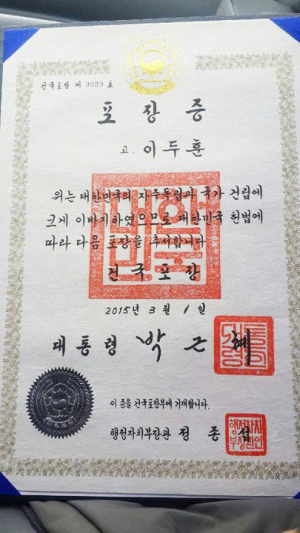 건국포장 제 3029 호
포장증
고. 이두훈
위는 대한민국의 자주독립과 국가 건립에
크게 이바지하였으므로 대한민국 헌법에
따라 다음 포장을 추서합니다
건국포장
2015년 3월 1일
대통령 박근혜
이 증을 건국포장부에 기재합니다.
행정자치부장관 정종섭